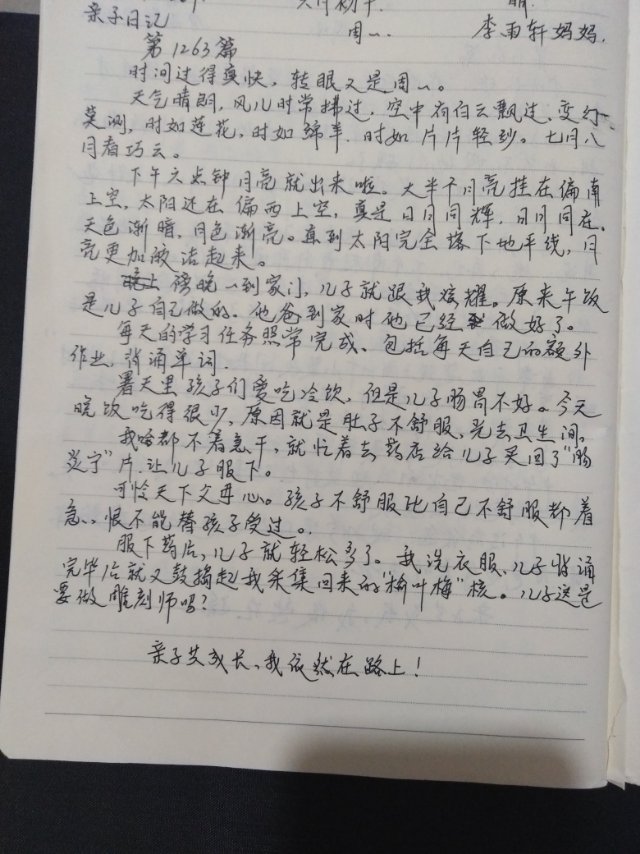 亲子日记
周一.
李雨轩妈妈.
第1263篇
时间过得真快,转眼又是周一。
天气晴朗,风儿时常拂过,空中有白云飘过,变幻
莫测,时如莲花,时如绵羊.时如片片轻纱。七月八
月看巧云。
下午六点钟月亮就出来啦。大半个月亮挂在偏南
上空,太阳还在偏西上空,真是日月同辉,日月同在。
天色渐暗,月色渐亮。直到太阳完全落下地平线,月
亮更加皎洁起来。
傍晚一到家门,儿子就跟我炫耀。原来午饭
是儿子自己做的。他爸到家时他已经做好了。
每天的学习任务照常完成、包括每天自己的额外
作业,背诵单词.
暑天里孩子们爱吃冷饮,但是儿子肠胃不好。今天
晚饭吃得很少,原因就是肚子不舒服,光去卫生间。
我啥都不着急干,就忙着去药店给儿子买回了"肠
炎宁"片.让儿子服下。
可怜天下父母心。孩子不舒服比自己不舒服都着
急、恨不能替孩子受过。
服下药片,儿子就轻松多了。我洗衣服,儿子背诵
完毕后就又鼓捣起我采集回来的"榆叶梅"核。儿子这是
要做雕刻师吗?
亲子共成长、我依然在路上!